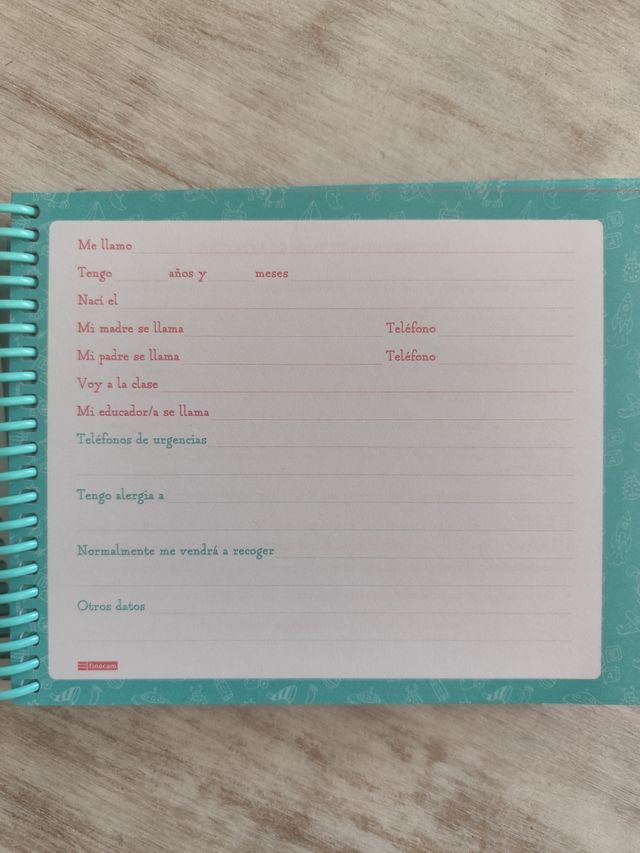 Me llamo
Tengo años y meses
Nací el
Mi madre se llama Teléfono
Mi padre se llama Teléfono
Voy a la clase
Mi educador/a se llama
Teléfonos de urgencias
Tengo alergia a
Normalmente me vendrá a recoger
Otros datos
finocam